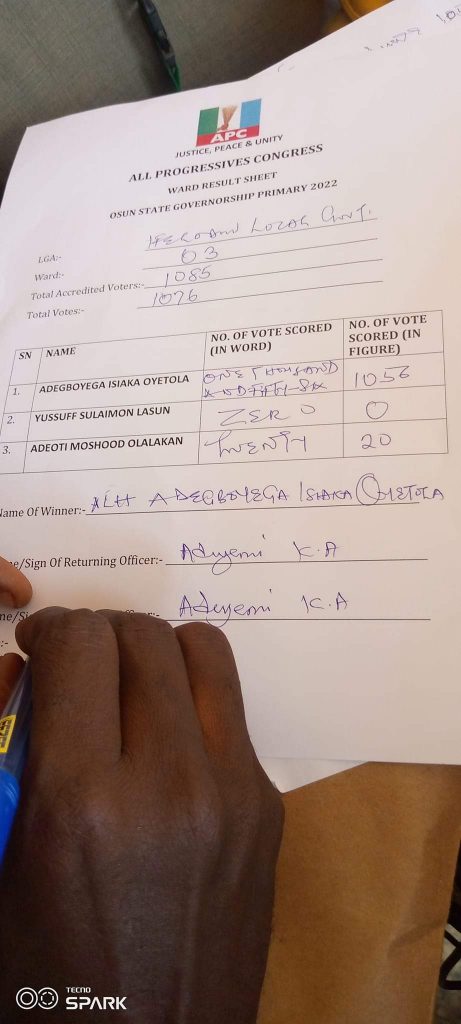 APC
JUSTICE, PEACE & UNITY
ALL PROGRESSIVES CONGRESS
WARD RESULT SHEET
OSUN STATE GOVERNORSHIP PRIMARY 2022
LGA:- IFEDAYO LOCAL GOVT.
Ward:- 03
Total Accredited Voters:- 1085
Total Votes:- 1076
SN NAME NO. OF VOTE SCORED (IN WORD) NO. OF VOTE SCORED (IN FIGURE)
1. ADEGBOYEGA ISIAKA OYETOLA ONE THOUSAND AND FIFTY-SIX 1056
2. YUSSUFF SULAIMON LASUN ZERO 0
3. ADEOTI MOSHOOD OLALAKAN TWENTY 20
Name Of Winner:- ALH ADEGBOYEGA ISIAKA OYETOLA
/Sign Of Returning Officer:- Adeyemi K.A
Adeyemi K.A
TECNO
SPARK